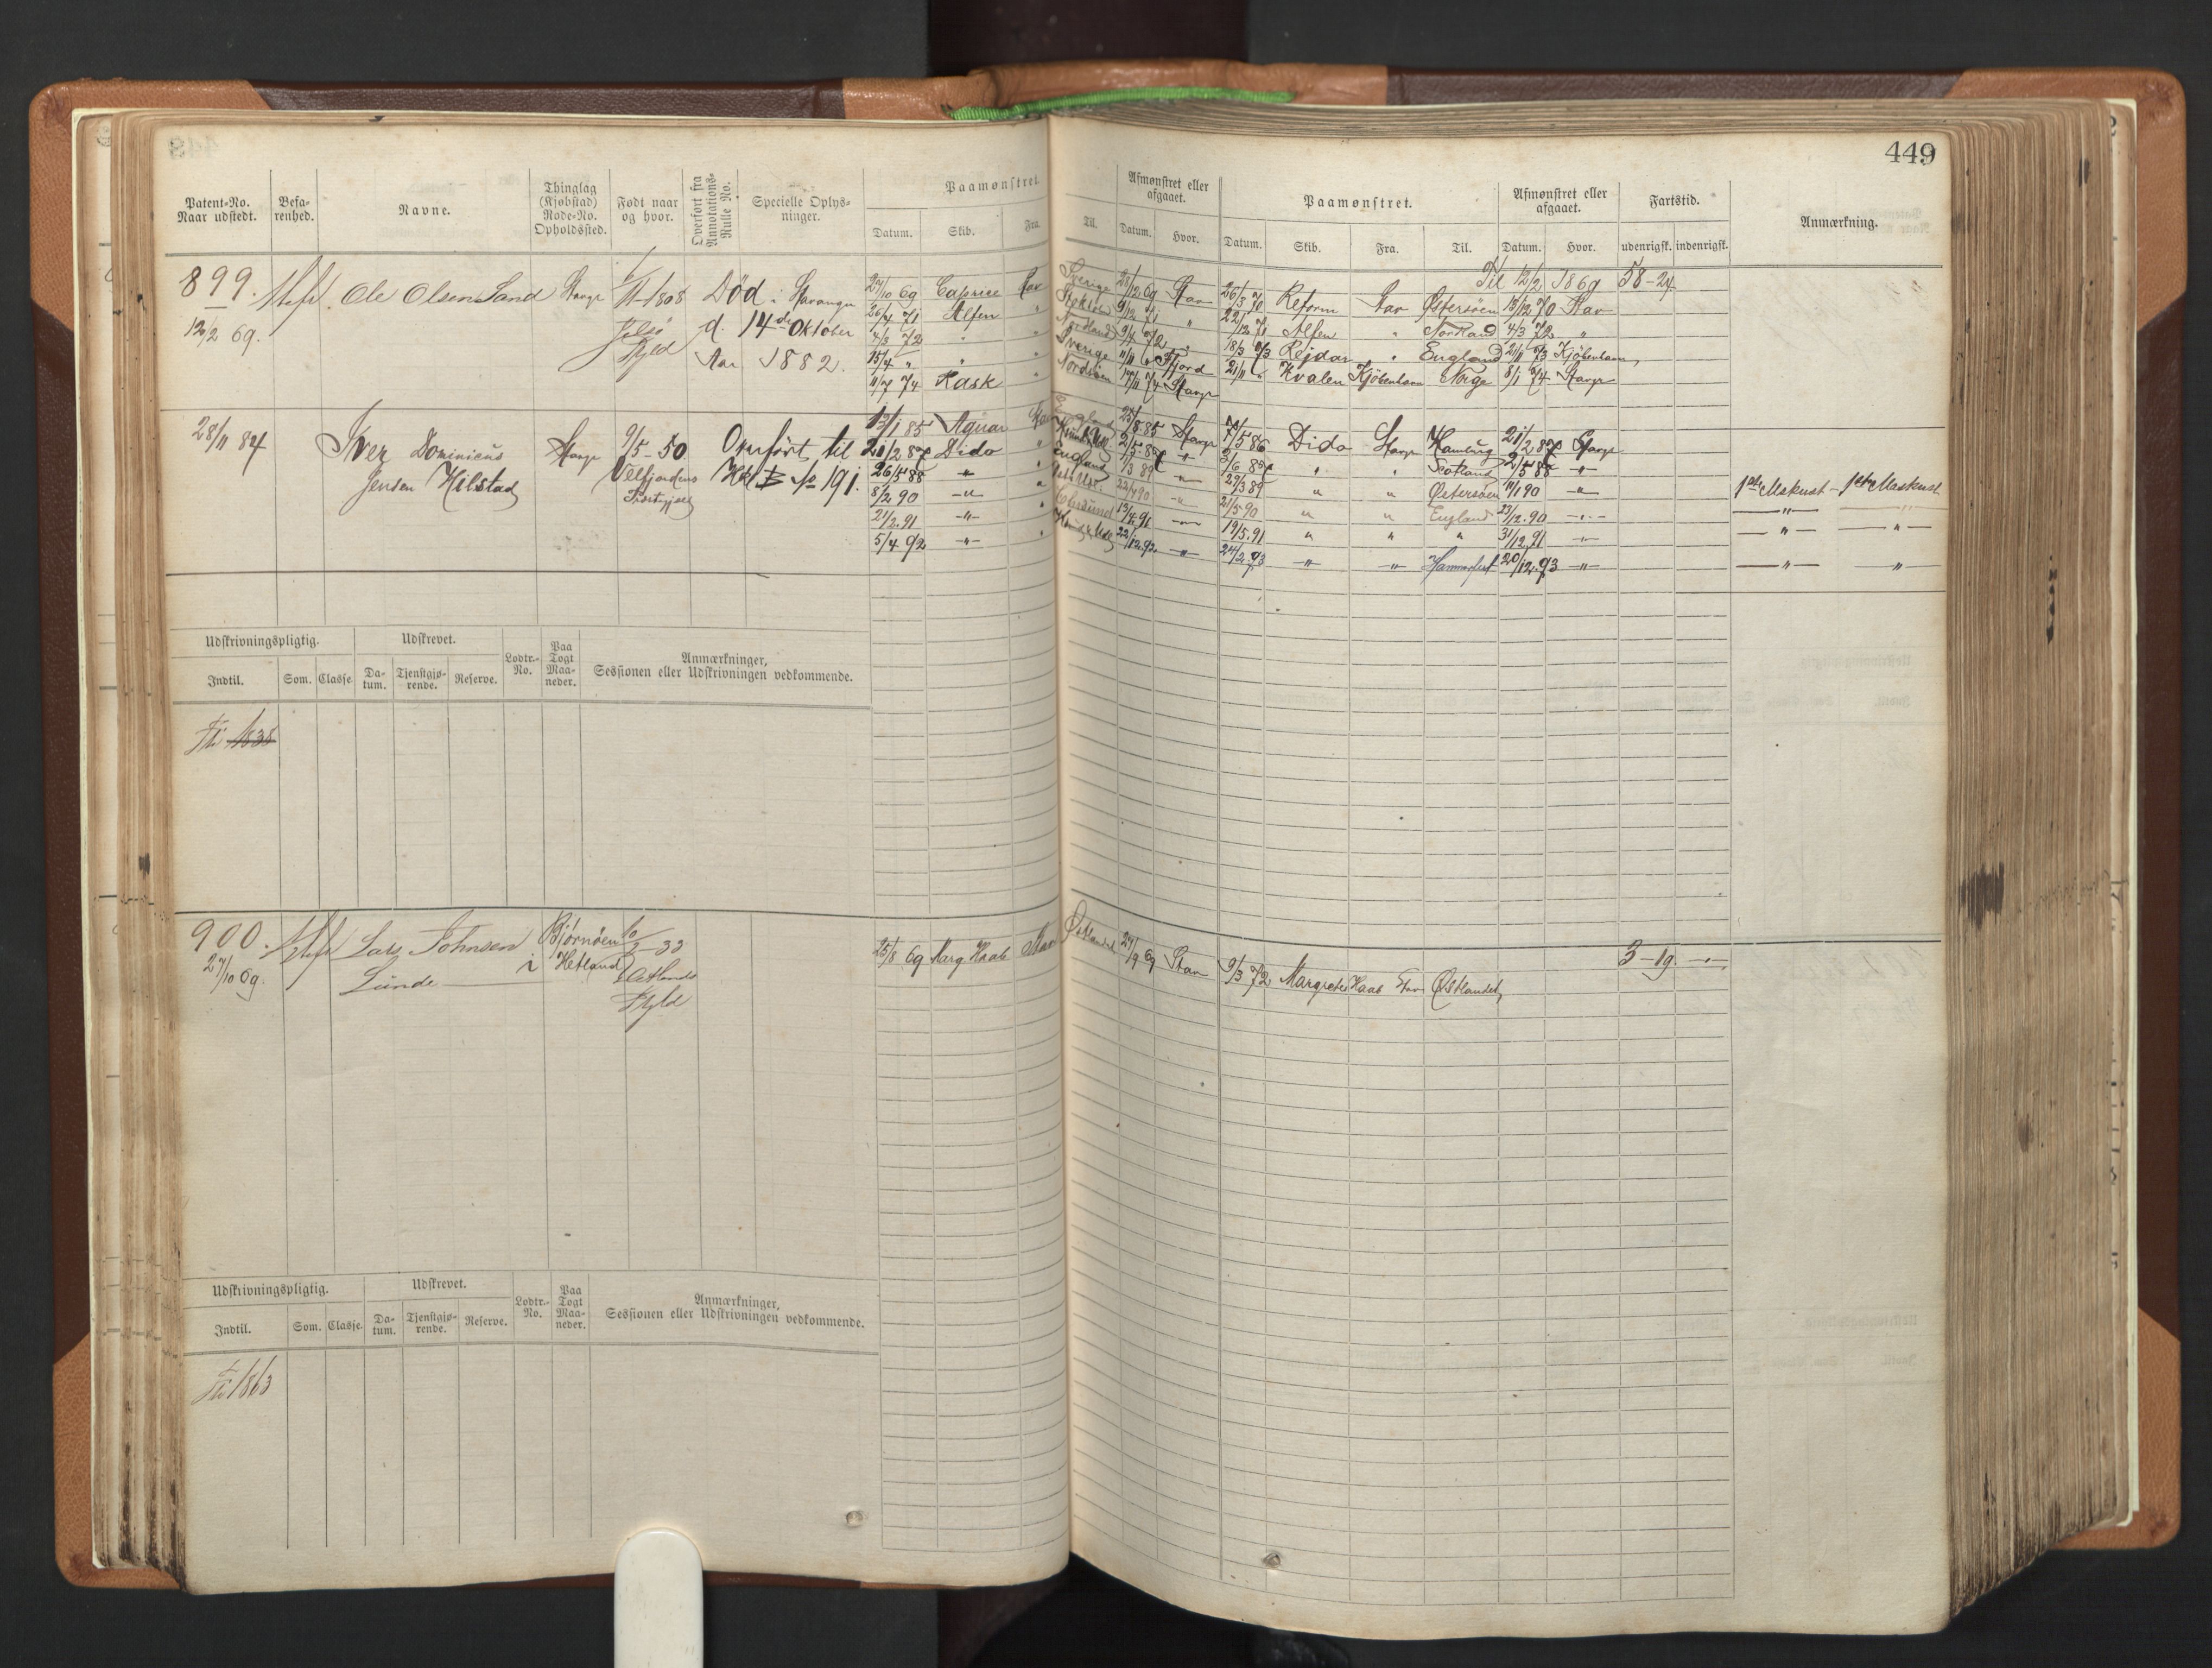 449
Patent-No. Naar udstedt.
Befarenhed.
Navne.
Thinglag (Kjøbstad) Rode-No. Opholdssted.
Født naar og hvor.
Overført fra Annotations-Rulle No.
Specielle Oplysninger.
Paamønstret.
Datum. Skib. Fra. Til.
Afmønstret eller afgaaet.
Datum. Hvor.
Paamønstret.
Datum. Skib. Fra. Til.
Afmønstret eller afgaaet.
Datum. Hvor.
Fartstid.
udenrigsk. indenrigsk.
Anmærkning.
899. Ole Olsen Sand Stavgr 1808 Død i Stavanger
12/2 69. Jelsø d. 14de Oktober
Fyld Aar 1882.
Til 12/2 1869 58-24
27/10 69 Caprice Stav Sverige 28/12 69 Stav 26/3 70 Reform Stav Østersøen 13/12 70 Stav
26/4 71 Alfen " 9/12 71 " 22/12 71 Alfen " Nordland 4/3 72 "
4/3 72 " " Nordland 9/4 72 " 18/3 73 Rejdar " England 21/11 73 Kjöbenhavn
15/4 " " " Sverige 11/11 " Fjord 21/11 " Hvalen Kjöbenhavn Norge 8/1 74 Stavgr
11/7 74 Rask " Nordsöen 17/11 74 Stavgr
28/11 84 Iver Dominicus Stavgr 9/5-50 Overført til
Jensen Hilstad Velfjordens Hbl No 191.
Præstegjeld
12/1 85 Aquar England 25/8 85 Stavgr 7/5 86 Dido Stavgr Hamburg 21/2 87 Stavgr
21/2 87 Dido " 2/5 87 " 3/6 87 " " Scotland 2/5 88 "
26/5 88 " " England /3 89 " 29/3 89 " " Østersøen 11/1 90 " 1ste Mskust - 1ste Maskust
8/2 90 " " 22/4 90 " 21/5 90 " " England 23/12.90 " " "
21/2.91 " " 13/4.91 " 19/5.91 " " " 31/12.91 " " "
5/4 92 " " 22/12.92 " 24/2.93 " " Hammerfest 20/12.93 " " "
Udskrivningspligtig. Udskrevet. Lodtr.-No. Paa Togt Maaneder. Anmærkninger, Sessionen eller Udskrivningen vedkommende.
Indtil. Som. Classe. Datum. Tjenstgjørende. Reserve.
1838
900. Lars Johnsen Bjørnöen
27/10 69. Lunde i Hetland -33
Fyld
25/8 69 Marg Haab Stav Østlandet 27/9 69 Stav 9/3 72 Margrete Haab Stav Østlandet 3-19. -"-
Udskrivningspligtig. Udskrevet. Lodtr.-No. Paa Togt Maaneder. Anmærkninger, Sessionen eller Udskrivningen vedkommende.
Indtil. Som. Classe. Datum. Tjenstgjørende. Reserve.
1863